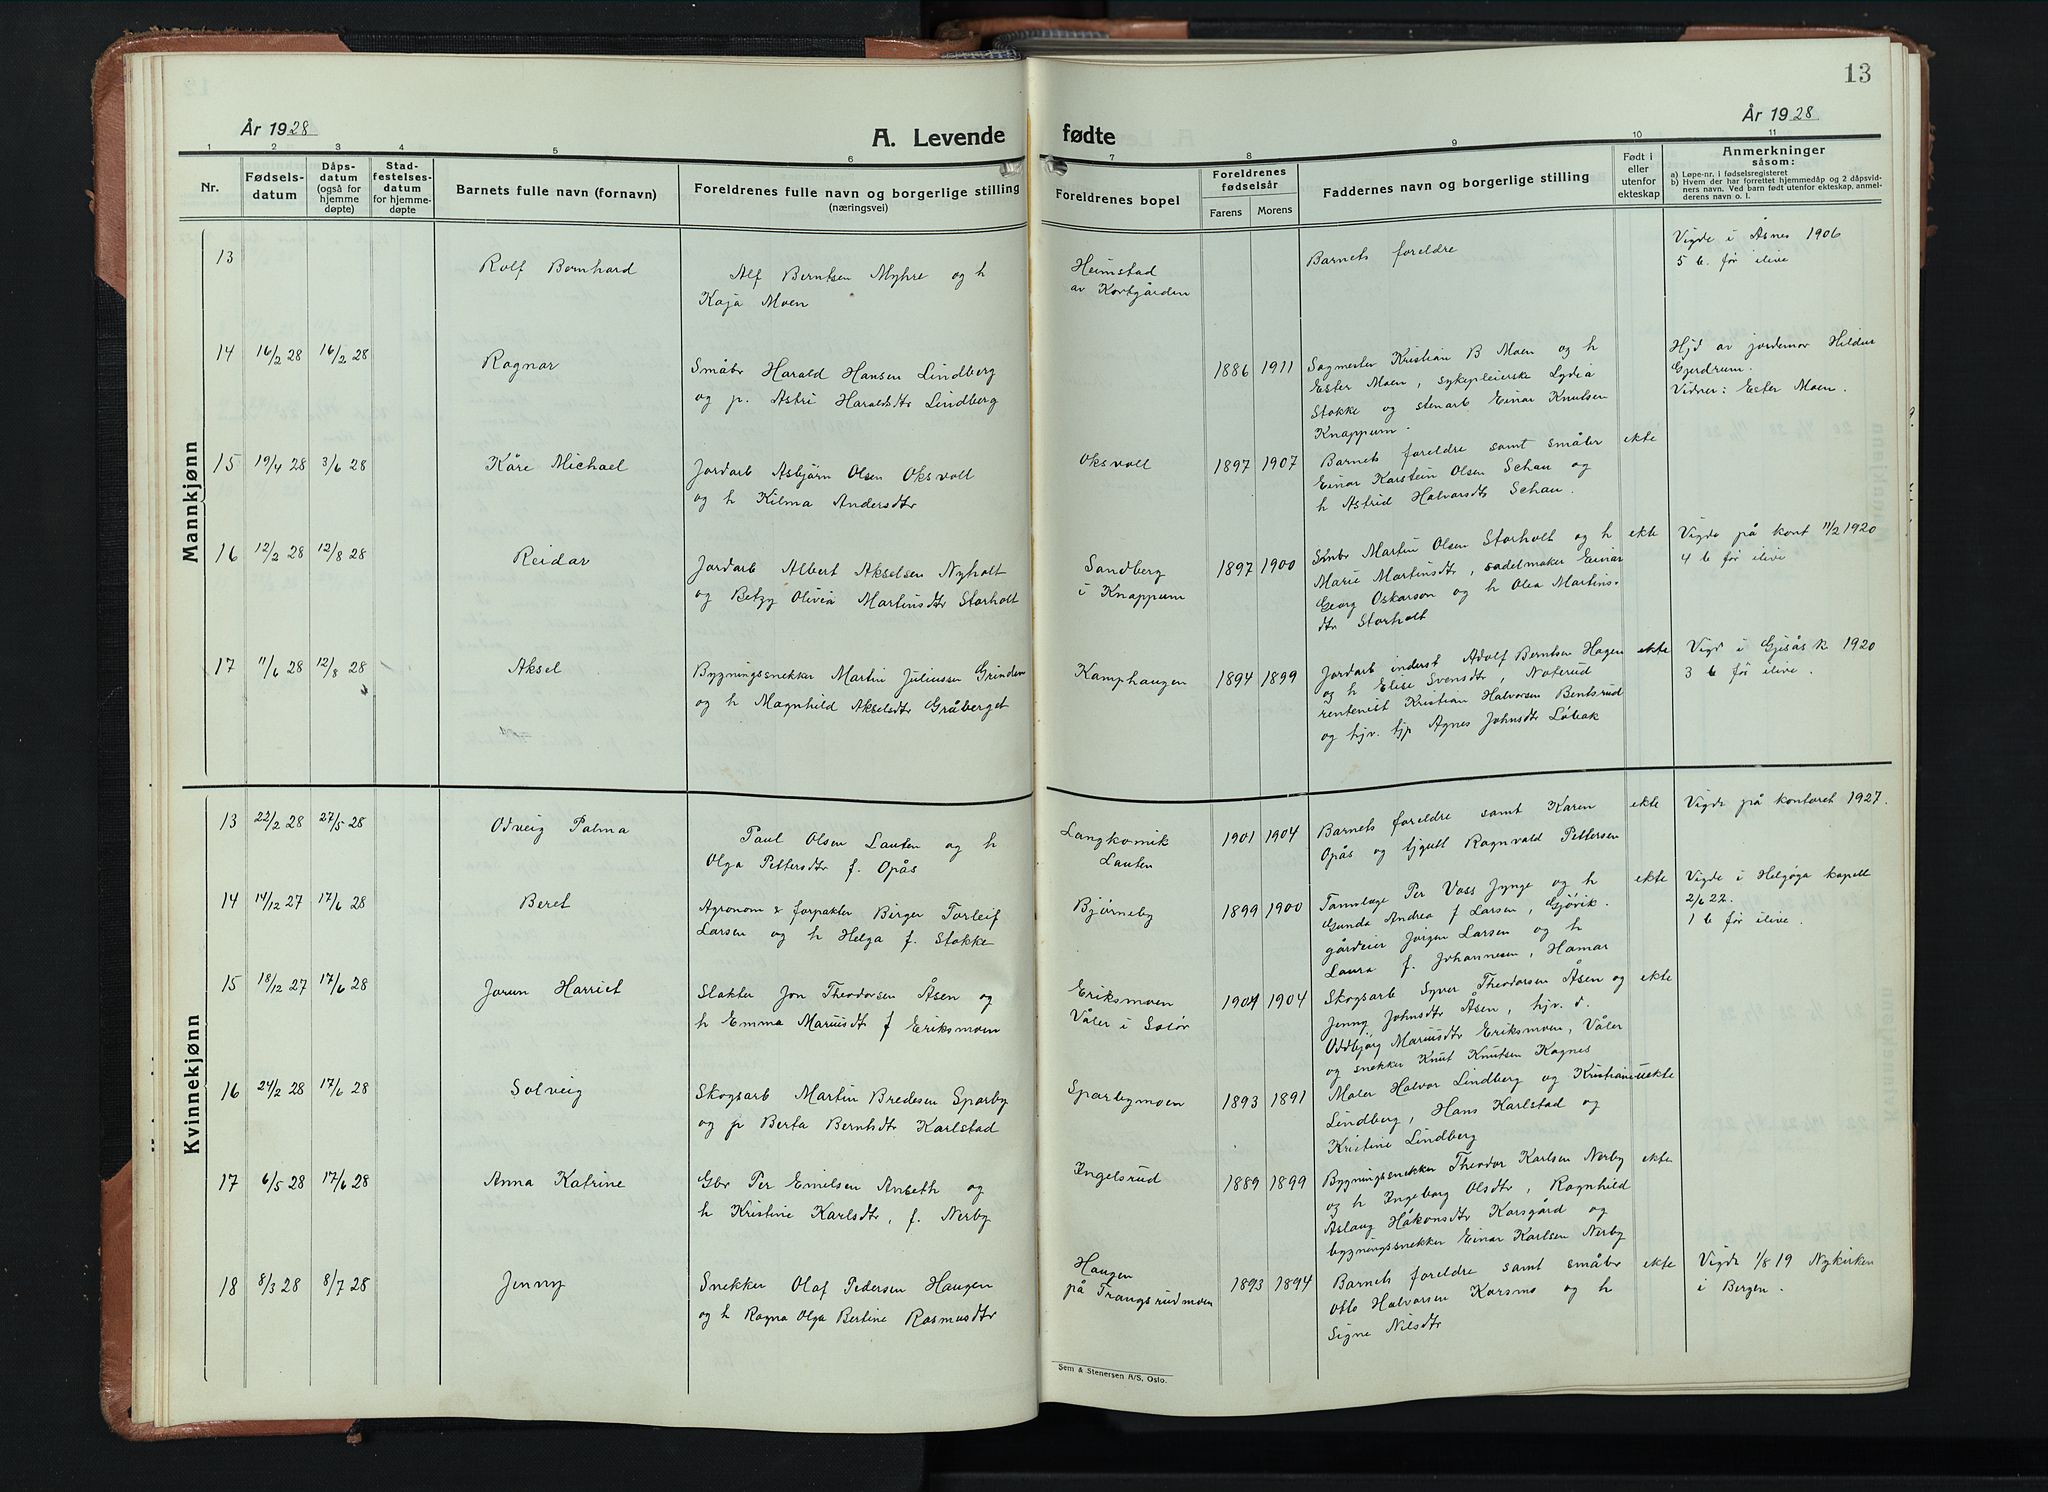 13
År 1928
A. Levende fødte
År 1928
1
2
3
4
5
6
7
8
9
10
11
Nr.
Fødsels-
datum
Dåps-
datum
(også for
hjemme
døpte)
Stad-
festelses-
datum
for hjemme-
døpte
Barnets fulle navn (fornavn)
Foreldrenes fulle navn og borgerlige stilling
(næringsvei)
Foreldrenes bopel
Foreldrenes
fødselsår
Farens
Morens
Faddernes navn og borgerlige stilling
Født i
eller
utenfor
ekteskap
Anmerkninger
såsom:
a) Løpe-nr. i fødselsregisteret
b) Hvem der har forrettet hjemmedåp og 2 dåpsvid-
ners navn. Ved barn født utenfor ekteskap, anmel-
derens navn o. l.
Mannkjønn
13 Rolf Bernhard
Alf Berntsen Myhre og h
Kaja Moen
Heimstad
av Kortgården
Barnets foreldre
Vigde i Åsnes 1906
5 b. før ilive
14 16/2 28 16/2 28 Ragnar
Småbr Harald Hansen Lindberg
og p. Astri Haraldsdtr Lindberg
1886 1911
Sagmester Kristian B Moen og h
Ester Moen, sykepleierske Lydia
Stokke og stenarb Einar Knutsen
Knappum.
Hjd av jordemor Hildur
Gjerdrum.
Vidner: Ester Moen.
15 19/4 28 3/6 28 Kåre Michael
Jordarb Asbjørn Olsen Oksvolt
og h Kilma Andersdtr
Oksvolt
1897 1907
Barnets foreldre samt småbr
Einar Karstein Olsen Schau og
h Astrid Halvorsdtr Schau.
ekte
16 12/2 28 12/8 28 Reidar
Jordarb Albert Akselsen Nyholt
og Betzy Olivia Martinsdtr Storholt
Sandberg
i Knappum
1897 1900
Småbr Martin Olsen Storholt og h
Marie Martinsdtr, sadelmaker Einar
Georg Oskarson og h Olea Martins-
dtr Storholt
ekte
Vigde på kont 11/2 1920
4 b før ilive
17 11/6 28 12/8 28 Aksel
Bygningssnekker Martin Juliussen Grinden
og h Magnhild Akselsdtr Gråberget
Kamphaugen
1894 1899
Jordarb inderst Adolf Berntsen Hagen
og h Elise Svensdtr, Noterud
rentenist Kristian Halvorsen Bentsrud
og hjv. tjp Agnes Johnsdtr Løbak
ekte
Vigd i Gjesås k 1920
3 b før ilive.
Kvinnekjønn
13 22/2 28 27/5 28 Odveig Palma
Paul Olsen Lauten og h
Olga Pettersdtr f. Opås
Langkovik
Lauten
1901 1904
Barnets foreldre samt Karen
Opås og tjgutt Ragnvald Pettersen
ekte
Vigde på kontoret 1927.
14 14/12 27 17/6 28 Beret
Agronom & forpakter Birger Torleif
Larsen og h Helga f. Stokke
Bjørneby
1899 1900
Tannlæge Per Voss Jynge og h
Gunda Andrea f Larsen, Gjøvik.
gårdeier Jørgen Larsen og h
Laura f. Johannesen, Hamar
ekte
Vigde i Helgøya kapell
2/6 22.
1 b før ilive.
15 18/12 27 17/6 28 Jorun Harriet
Slakter Jon Theodorsen Åsen og
h Emma Mariusdtr f Eriksmoen
Eriksmoen
Våler i Solør
1904 1904
Skogsarb Syver Theodorsen Åsen og
Jenny Johnsdtr Åsen, hjv. d.
Oddbjørg Mariusdtr Eriksmoen, Våler
og snekker Knut Knutsen Kagnes
ekte
16 24/2 28 17/6 28 Solveig
Skogsarb Martin Bredesen Sparby
og p Berta Berntsdtr Karlstad
Sparbymoen
1893 1891
Maler Halvor Lindberg og Kristiane
Lindberg, Hans Karlstad og
Kristine Lindberg
uekte
17 6/5 28 17/6 28 Anna Katrine
Gbr Per Emilsen Anseth og
h Kristine Karlsdtr, f. Nerby
Ingelsrud
1889 1899
Bygningssnekker Theodor Karlsen Nerby
og h Ingeborg Olsdtr, Ragnhild
Aslaug Håkonsdtr Korsgård og
bygningssnekker Einar Karlsen Nerby
ekte
18 8/3 28 8/7 28 Jenny
Snekker Olaf Pedersen Haugen
og h Ragna Olga Bertine Rasmusdtr
Haugen
på Trangsrudmoen
1893 1894
Barnets foreldre samt småbr
Otto Halvorsen Korsmo og h
Signe Nilsdtr
ekte
Vigde 1/8 19 Nykirken
i Bergen.
Sem & Stenersen A/S, Oslo.